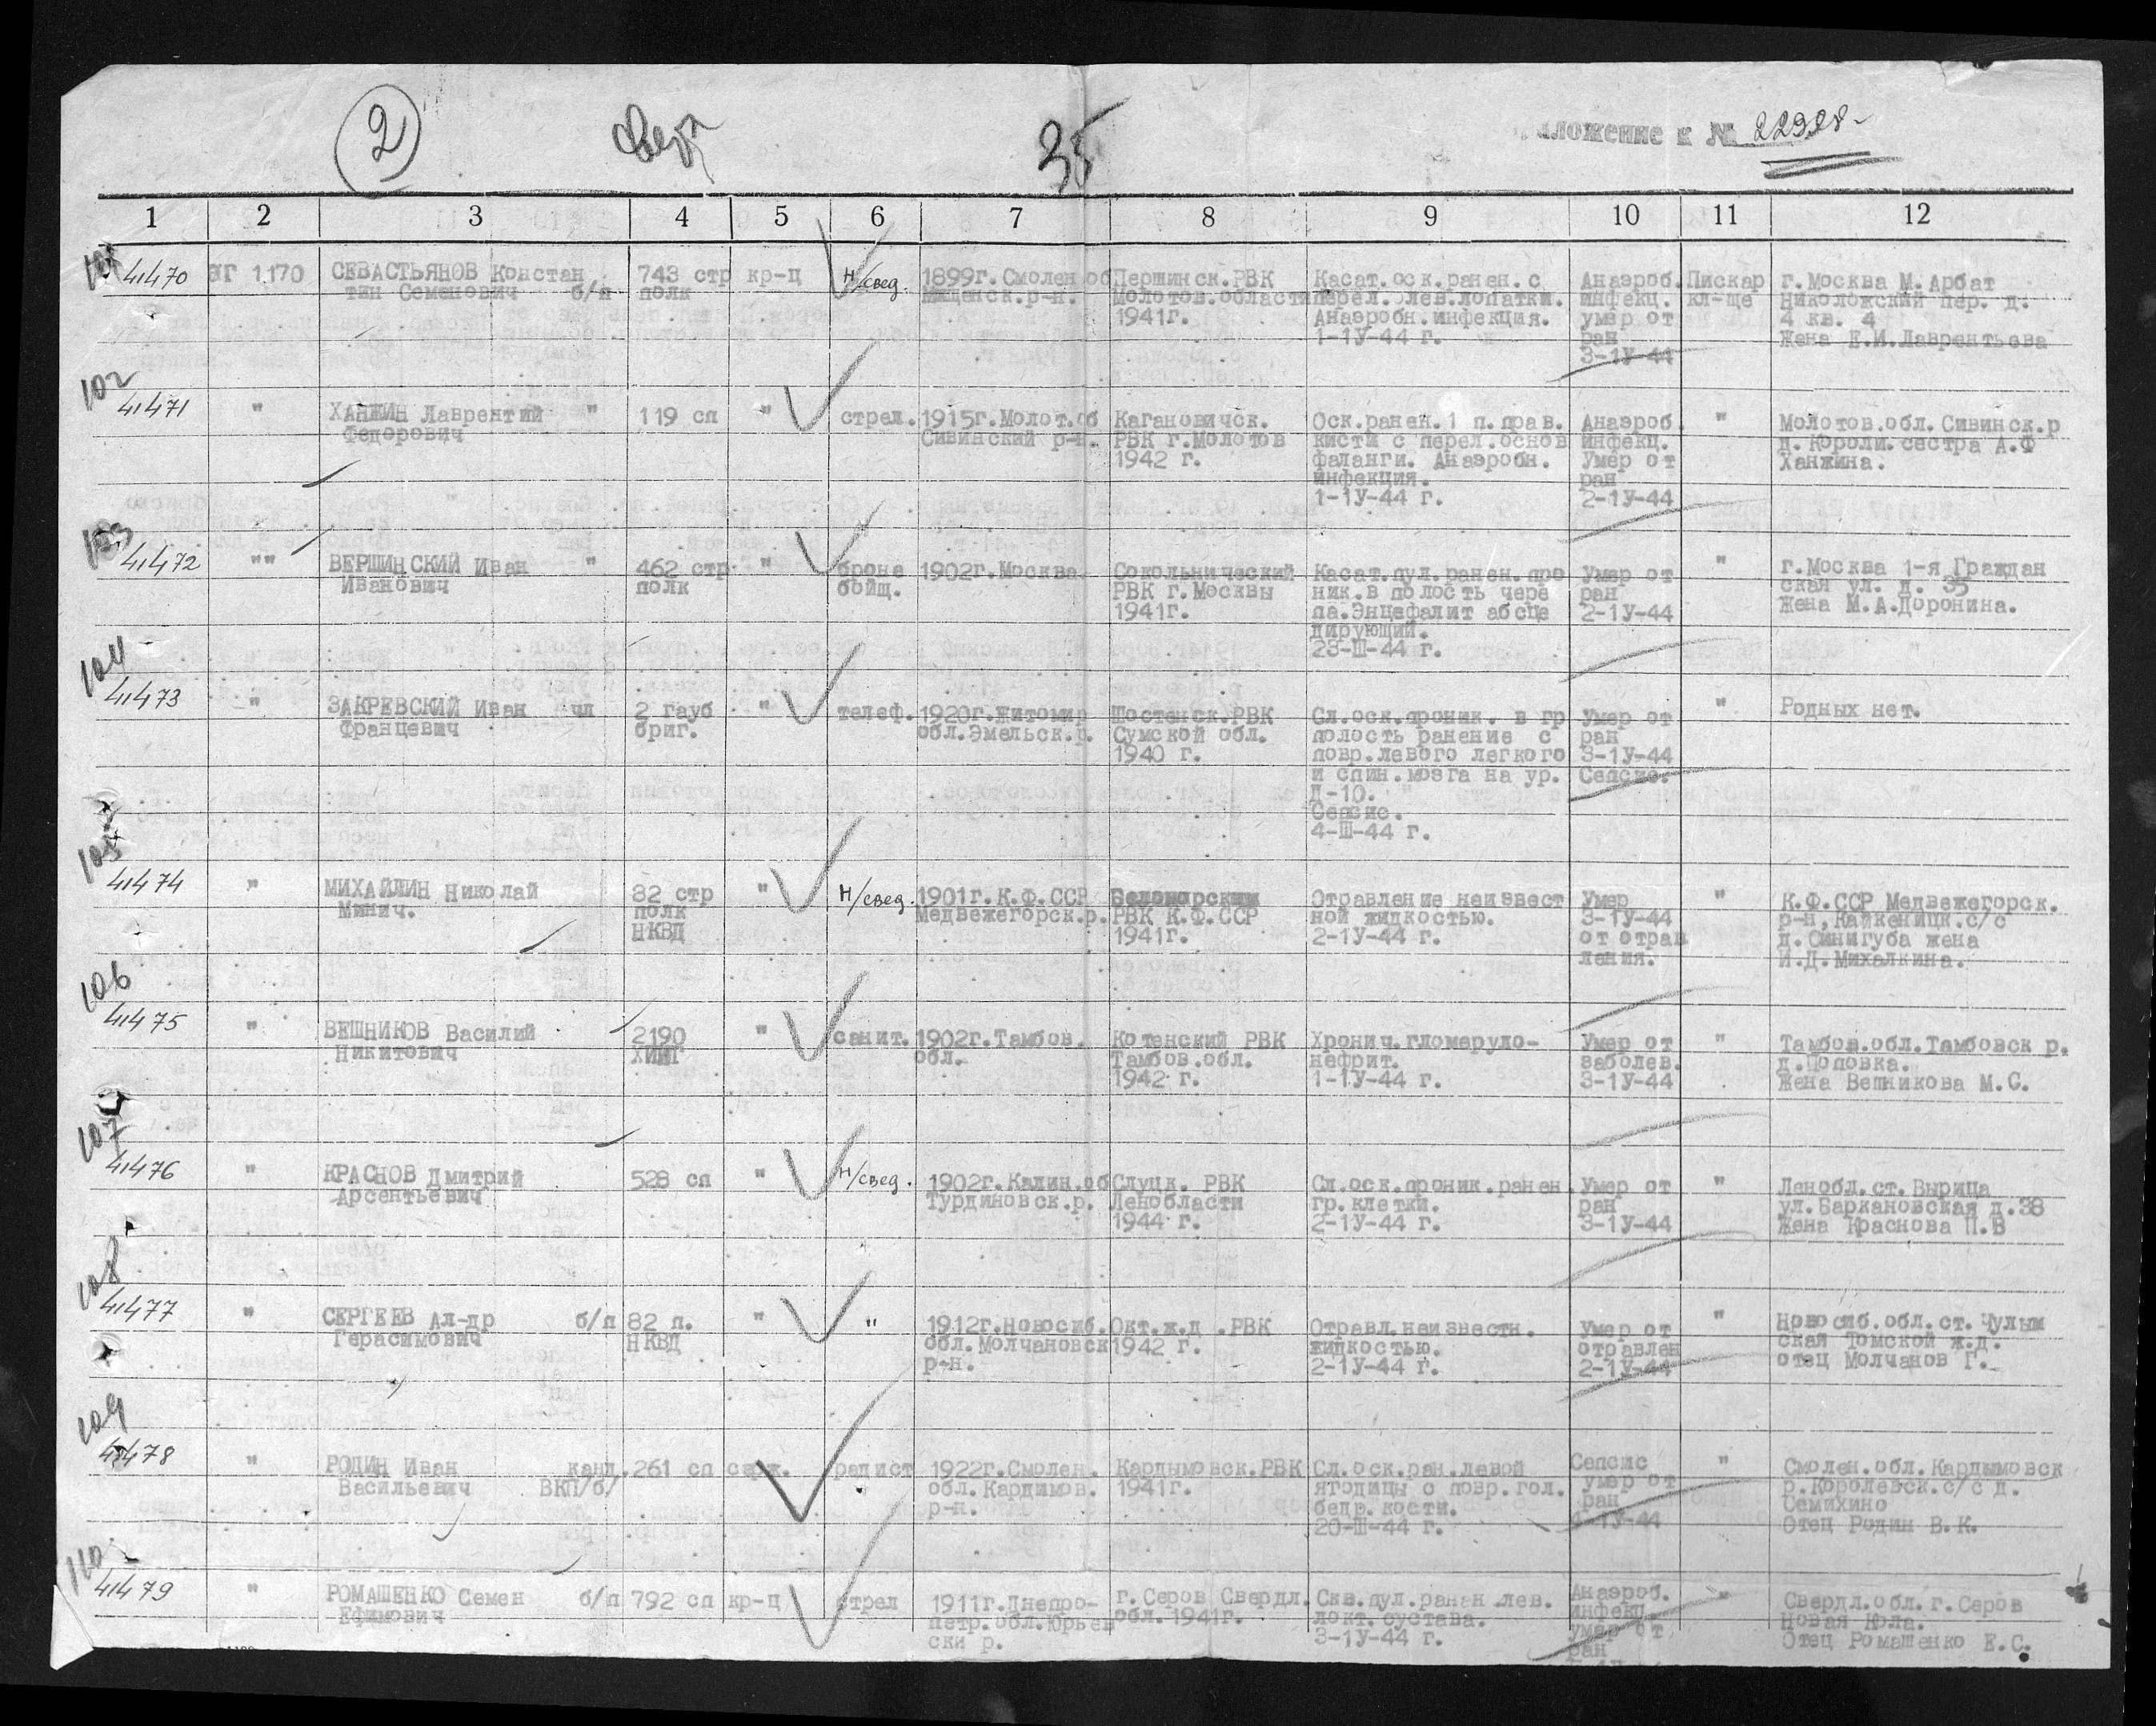 2
35
ложение к № 22928
1 2 3 4 5 6 7 8 9 10 11 12
101
41470 ЭГ 1170 СЕВАСТЬЯНОВ Констан 743 стр кр-ц н/свед. 1899г.Смолен об Першинск.РВК Касат.оск.ранен.с Анаэроб. Пискар г.Москва М.Арбат
тин Семенович б/п полк Мищенск.р-н. Молотов.области перел.лев.лопатки. инфекц. кл-ще Николожский пер. д.
1941г. Анаэробн.инфекция. умер от 4 кв. 4
1-1У-44 г. ран Жена Е.И.Лаврентьева
3-1У-44
102
41471 " ХАНЖИН Лаврентий " 119 сп " стрел. 1915г.Молот.об Кагановичск. Оск.ранен.1 п.прав. Анаэроб. " Молотов.обл.Сивинск.р
Федорович Сивинский р-н. РВК г.Молотов кисти с перел.основ инфекц. д.Короли.сестра А.Ф
1942 г. фаланги. Анаэробн. Умер от Ханжина.
инфекция. ран
1-1У-44 г. 2-1У-44
103
41472 "" ВЕРШИНСКИЙ Иван " 462 стр " броне 1902г.Москва. Сокольнический Касат.пул.ранен.про Умер от " г.Москва 1-я Граждан
Иванович полк бойщ. РВК г.Москвы ник.в полость чере ран ская ул. д. 35
1941г. па.Энцефалит абсце 2-1У-44 Жена М.А.Доронина.
дирующий.
23-Ш-44 г.
104
41473 " ЗАКРЕВСКИЙ Иван чл 2 гауб " телеф. 1920г.Житомир Шостенск.РВК Сл.оск.проник. в гр Умер от " Родных нет.
Францевич бриг. обл.Эмельск.р. Сумской обл. полость ранение с ран
1940 г. повр.левого легкого 3-1У-44
и спин.мозга на ур. Сепсис.
Д-10.
Сепсис.
4-Ш-44 г.
105
41474 " МИХАЙЛИН Николай 82 стр " н/свед. 1901г.К.Ф.ССР Беломорский Отравление неизвест Умер " К.Ф.ССР Медвежегорск.
Минич. полк Медвежегорск.р. РВК К.Ф.ССР ной жидкостью. 3-1У-44 р-н,Кайкеницк.с/с
НКВД 1941г. 2-1У-44 г. от отрав д.Синигуба жена
ления. И.Д.Михалкина.
106
41475 " ВЕШНИКОВ Василий 2190 " санит. 1902г.Тамбов. Котенский РВК Хронич.гломеруло- Умер от " Тамбов.обл.Тамбовск р.
Никитович ХППГ обл. Тамбов.обл. нефрит. заболев. д.Поповка.
1942 г. 1-1У-44 г. 3-1У-44 Жена Вешникова М.С.
107
41476 " КРАСНОВ Дмитрий 528 сп " н/свед. 1902г.Калин.об Слуцк. РВК Сл.оск.проник.ранен. Умер от " Ленобл.ст.Вырица
Арсентьевич Турдиновск.р. Ленобласти гр.клетки. ран ул.Баркановская д.38
1944 г. 2-1У-44 г. 3-1У-44 Жена Краснова П.В
108
41477 " СЕРГЕЕВ Ал-др б/п 82 п. " " 1912г.Новосиб. Окт.ж.д .РВК Отравл.неизвестн. Умер от " Новосиб.обл.ст.Чулым
Герасимович НКВД обл.Молчановск 1942 г. жидкостью. отравлен ская Томской ж.д.
р-н. 2-1У-44 г. 2-1У-44 отец Молчанов Г.
109
41478 " РОДИН Иван канд. 261 сп серж. радист 1922г.Смолен. Кардымовск.РВК Сл.оск.ран.левой Сепсис " Смолен.обл.Кардымовск
Васильевич ВКП/б/ обл.Кардимов. 1941г. ягодицы с повр.гол. умер от р.Королевск.с/с д.
р-н. бедр.кости. ран Семихино
20-Ш-44 г. 4-1У-44 Отец Родин В.К.
110
41479 " РОМАШЕНКО Семен б/п 792 сп кр-ц стрел 1911г.Днепро- г.Серов Свердл. Скв.пул.ранен лев. Анаэроб. " Свердл.обл.г.Серов
Ефимович петр.обл.Юрьев обл.1941г. локт.сустава. инфекц. Новая Кола.
ски р. 3-1У-44 г. умер от Отец Ромашенко Е.С.
ран